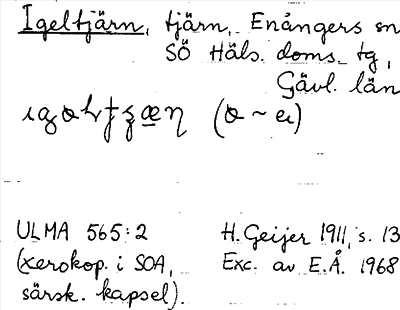 Igeltjärn, tjärn, Enångers sn
SÖ Häls. doms. tg,
Gävl. län
ULMA 565:2
(xerokop. i SOA,
särsk. kapsel).
H. Geijer 1911, s. 13
Exc. av E.Å. 1968